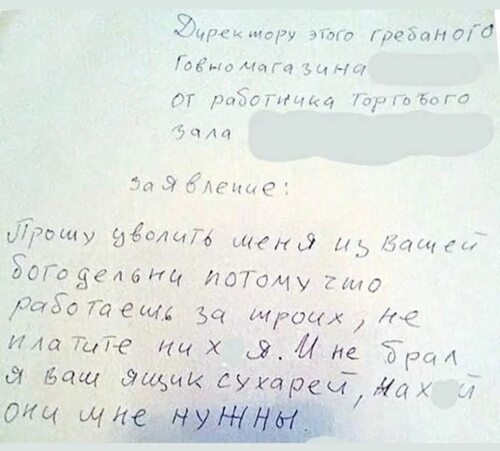 Директору этого гребаного
Говномагазина
от работника торгового
зала
заявление:
Прошу уволить меня из вашей
богодельни потому что
работаешь за троих, не
платите них я. И не брал
я ваш ящик сухарей, нах й
они мне нужны.